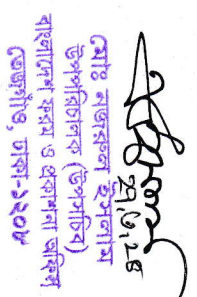 ২৭.৬.২৪
মোঃ নজরুল ইসলাম
উপপরিচালক (উপসচিব)
বাংলাদেশ ফরম ও প্রকাশনা অফিস
তেজগাঁও, ঢাকা-১২০৮